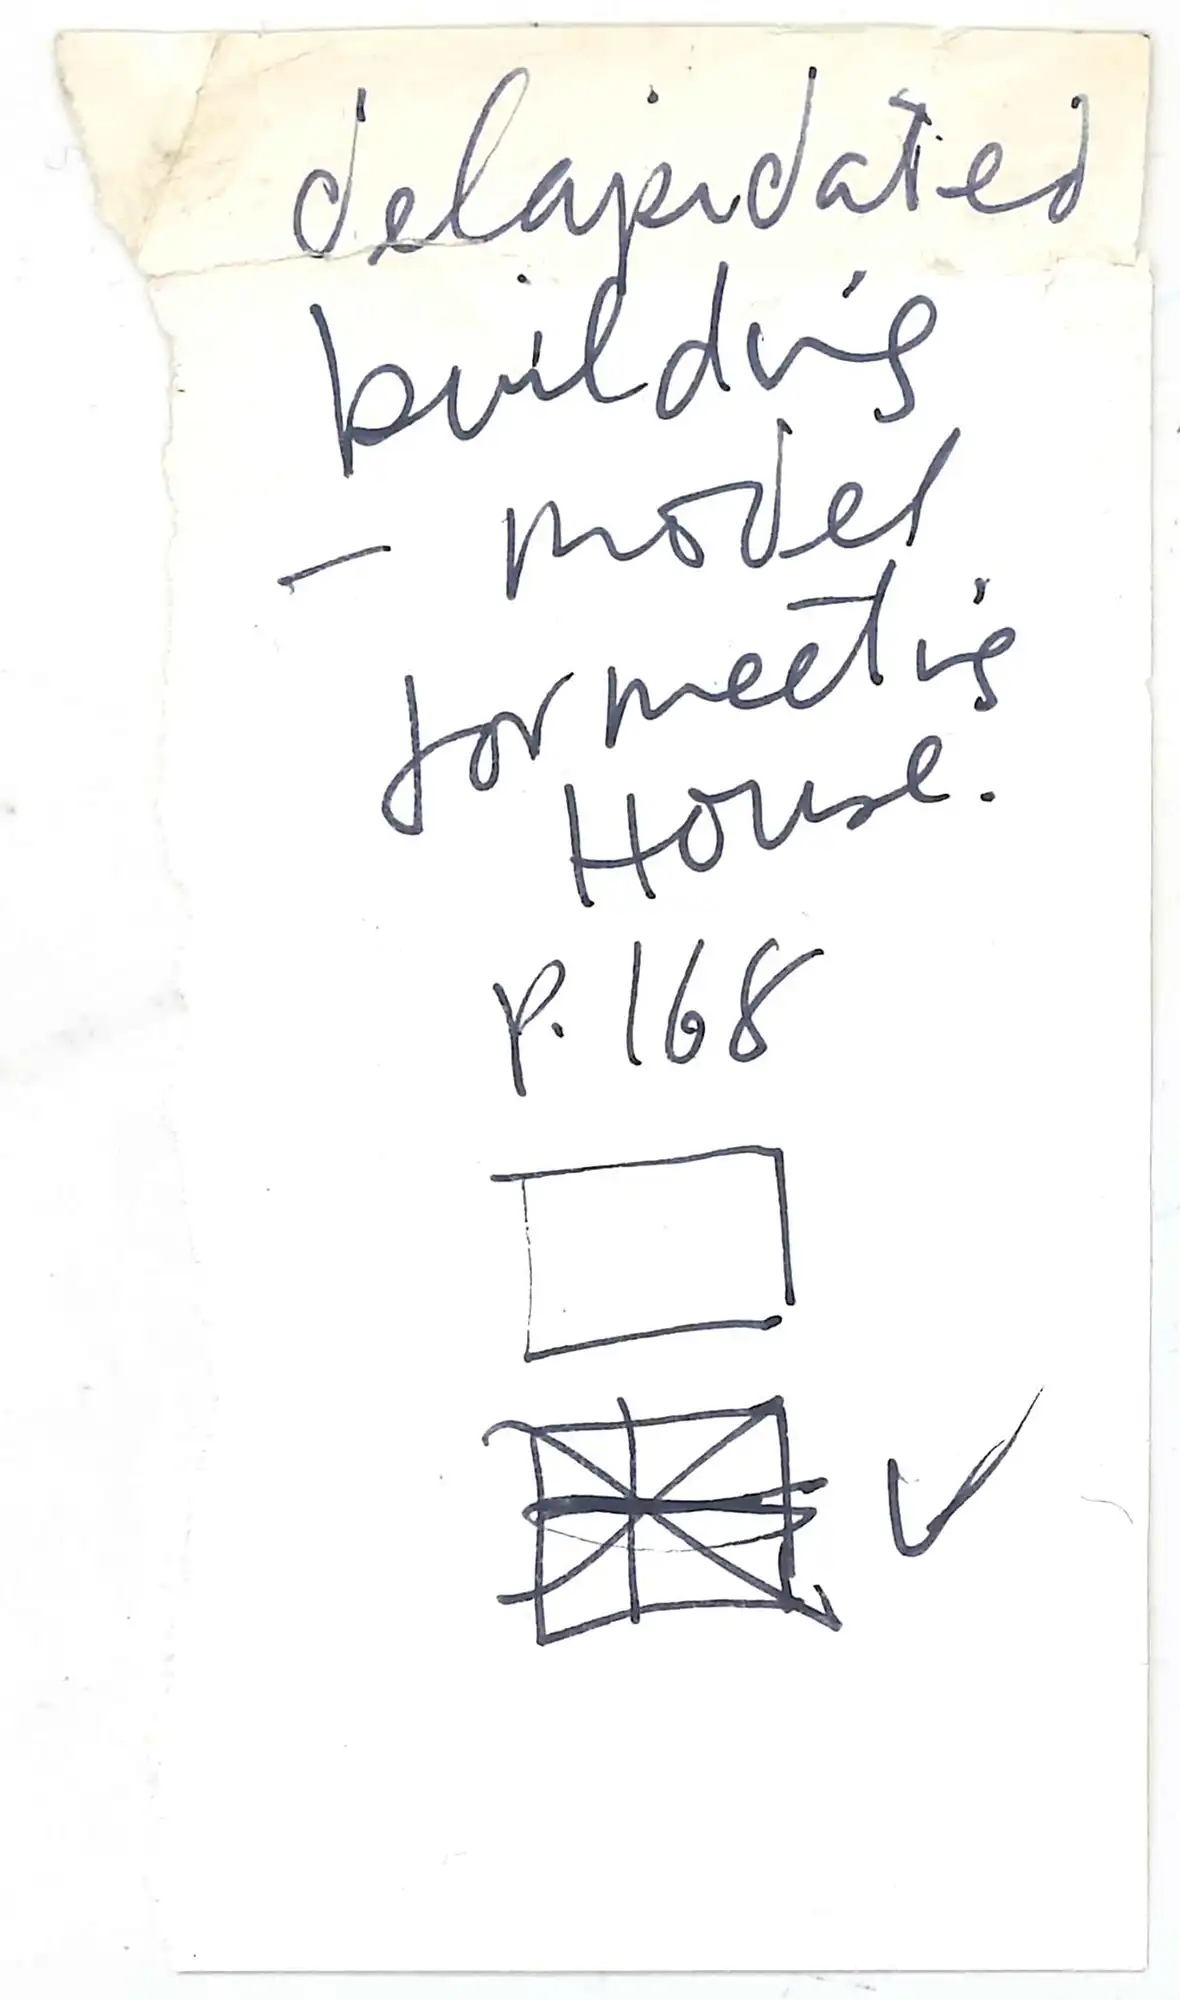 delapidated
building
- model
for meeting
House.
p. 168